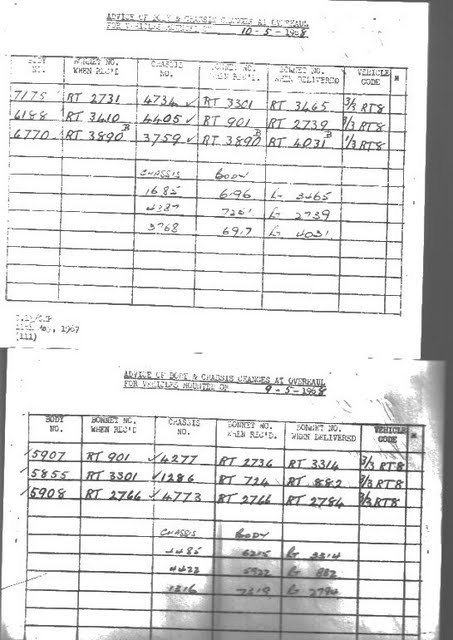 ADVICE OF BODY & CHASSIS CHANGES AT OVERHAUL
FOR VEHICLES MOUNTED ON 10-5-1968
BODY NO. BONNET NO. WHEN REC'D CHASSIS NO. BONNET NO. WHEN REC'D. BONNET NO. WHEN DELIVERED VEHICLE CODE *
7175 RT 2731 4734 ✓ RT 3301 RT 3465 3/3 RT8
6188 RT 3410 4405 ✓ RT 901 RT 2739 3/3 RT8
6770 RT 3890 B 3759 ✓ RT 3890 B RT 4031 B 1/3 RT8
CHASSIS BODY
1685 6196 3465
4387 2739
3768 6917 4031
1967
(111)
ADVICE OF BODY & CHASSIS CHANGES AT OVERHAUL
FOR VEHICLES MOUNTED ON 9-5-1968
BODY NO. BONNET NO. WHEN REC'D CHASSIS NO. BONNET NO. WHEN REC'D. BONNET NO. WHEN DELIVERED VEHICLE CODE *
✓5907 RT 901 ✓4277 RT 2736 RT 3314 3/3 RT8
✓5855 RT 3301 ✓1286 RT 724 RT 882 3/3 RT8
✓5908 RT 2766 ✓4773 RT 2766 RT 2784 3/3 RT8
CHASSIS BODY
4485 6215 3314
4422 5922 882
1316 7319